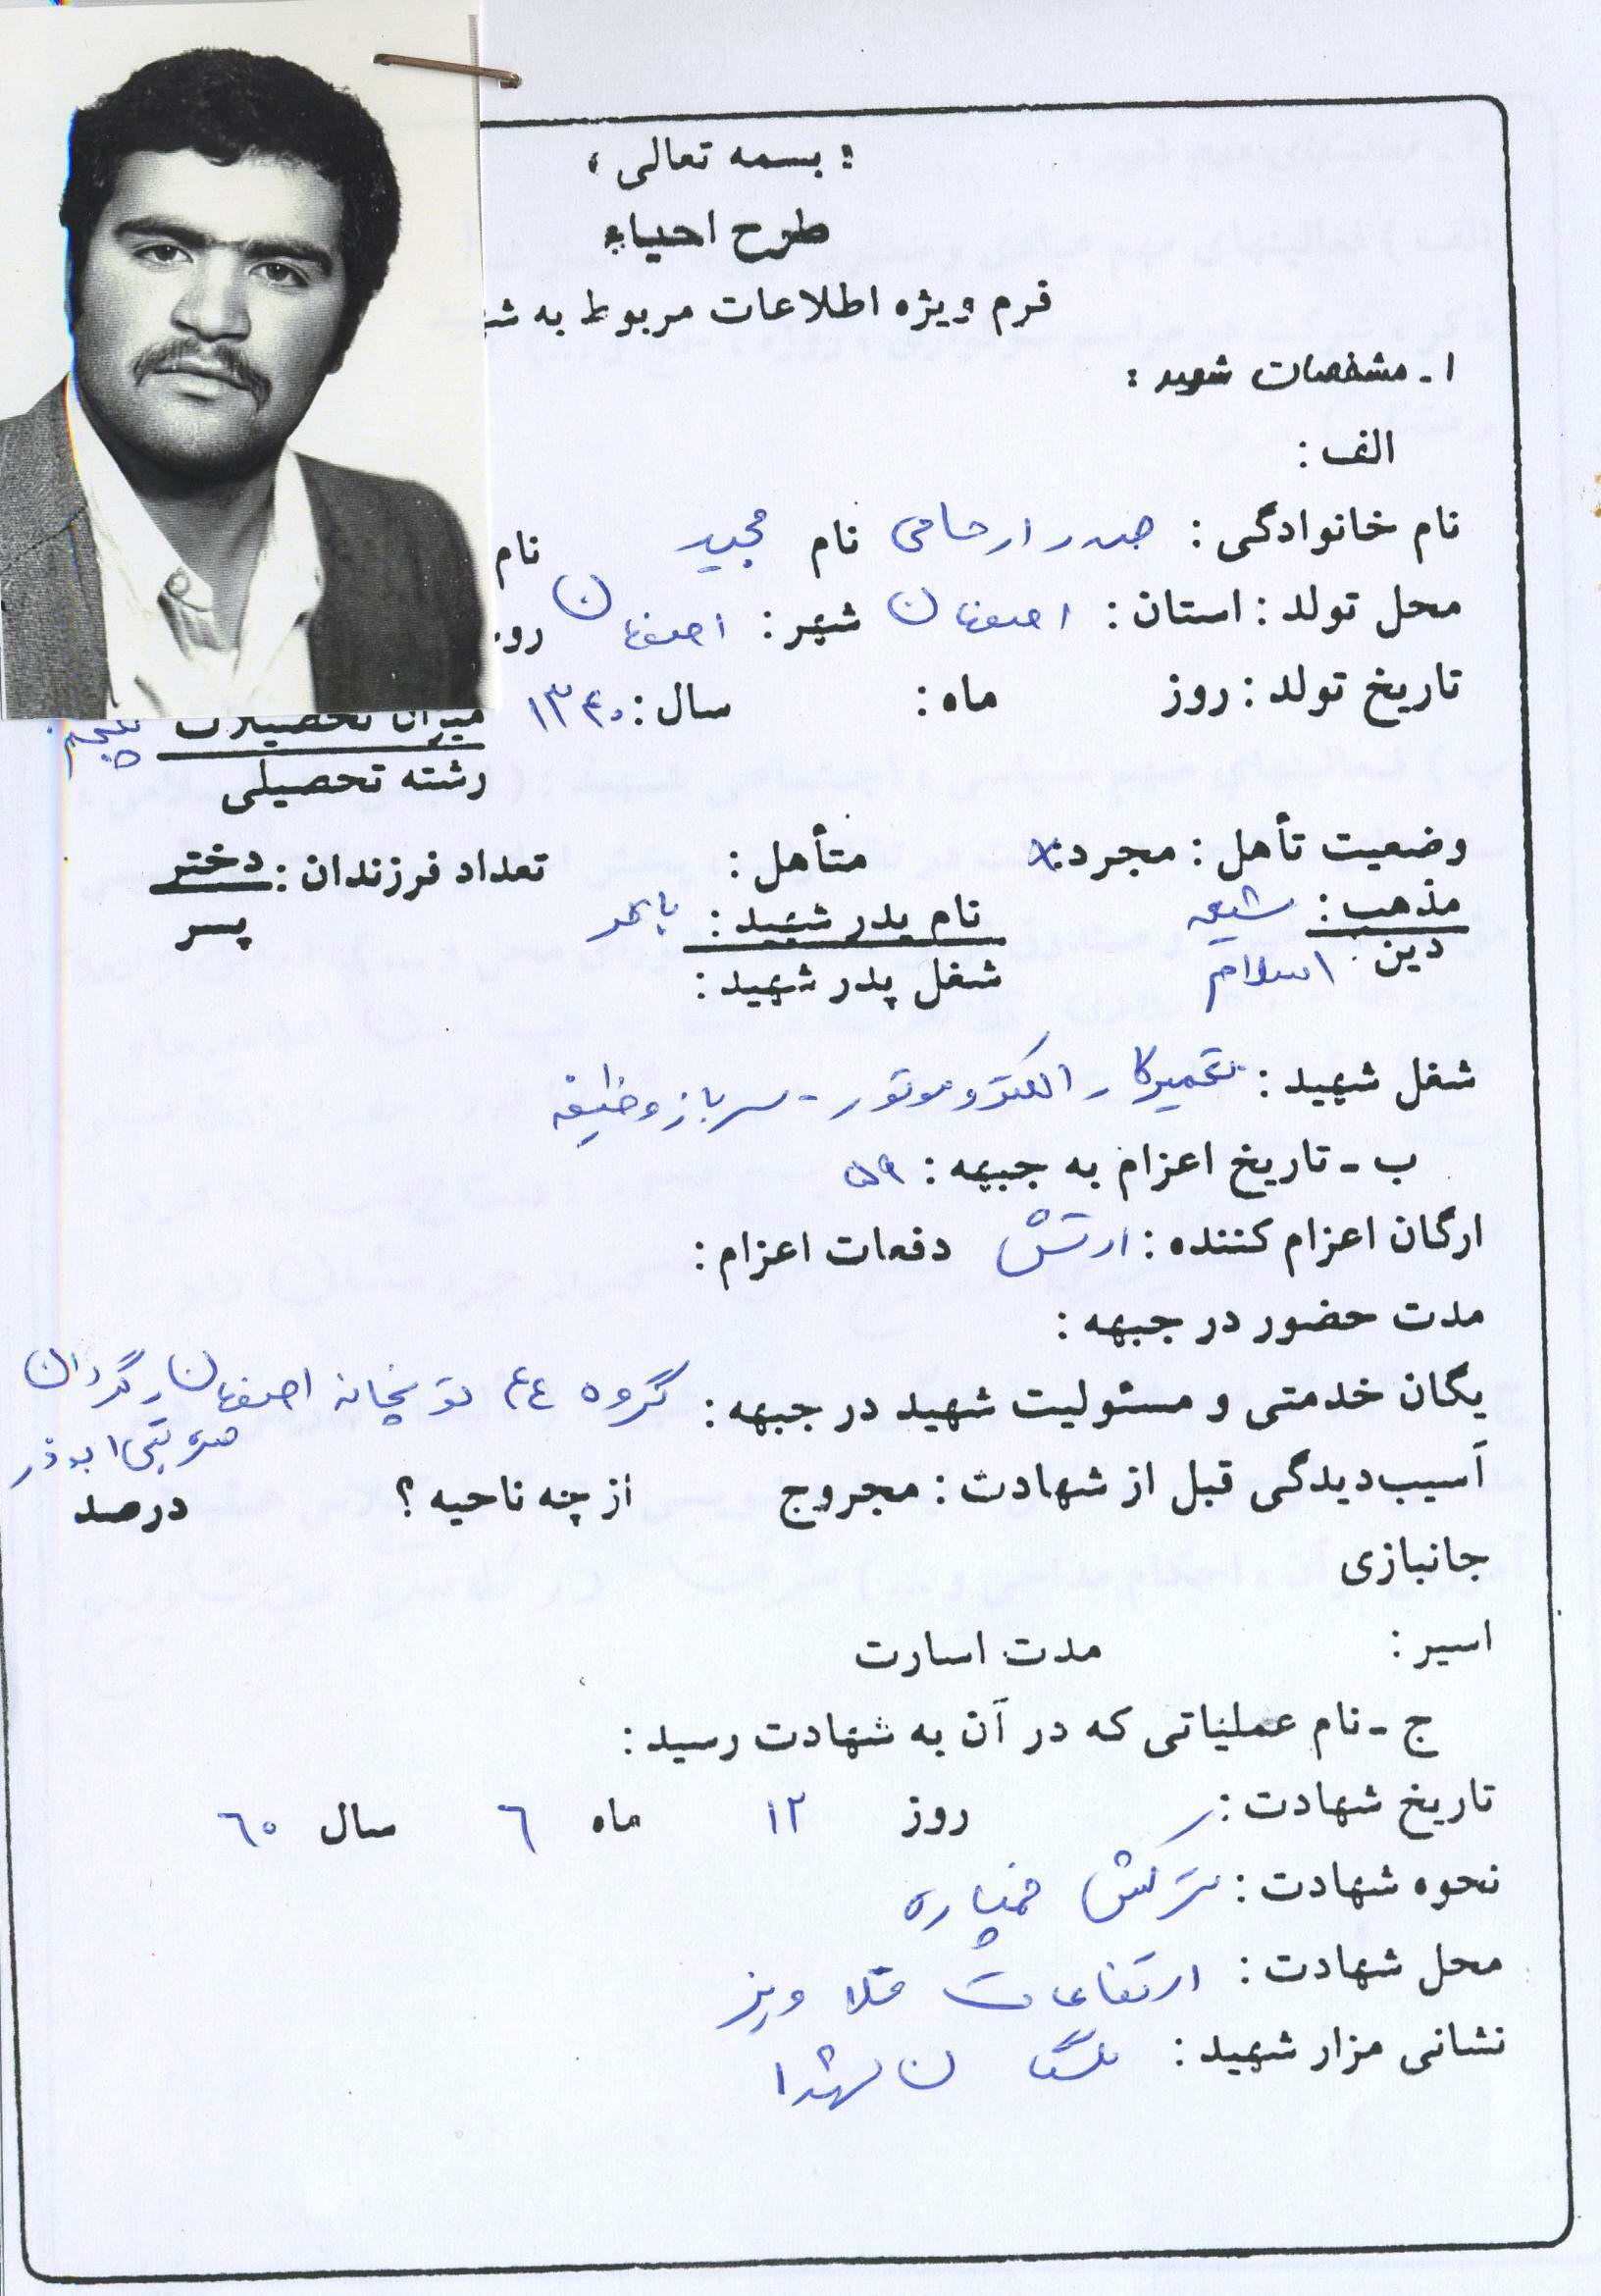 : بسمه تعالی ،
طرح احیاء
فرم ویژه اطلاعات مربوط به
۱ـ مشخصات شهید :
الف :
نام خانوادگی : صدر ارحامی نام مجید نام
محل تولد : استان : اصفهان شهر : اصفهان
تاریخ تولد : روز ماه : سال : ۱۳۴۰ میزان تحصیلات پنجم
رشته تحصیلی
وضعیت تأهل : مجرد : × متأهل : تعداد فرزندان : دختر
پسر
مذهب : شیعه نام پدر شهید :
دین اسلام شغل پدر شهید :
شغل شهید : تعمیرکار الکتروموتور - سرباز وظیفه
ب ـ تاریخ اعزام به جبهه : ۵۹
ارگان اعزام کننده : ارتش دفعات اعزام :
مدت حضور در جبهه :
یگان خدمتی و مسئولیت شهید در جبهه : گروه ٤٤ توپخانه اصفهان گردان
ضربتی ابوذر
آسیب‌دیدگی قبل از شهادت : مجروح از چه ناحیه ؟ درصد
جانبازی
اسیر : مدت اسارت
ج ـ نام عملیاتی که در آن به شهادت رسید :
تاریخ شهادت : روز ۱۲ ماه ٦ سال ٦۰
نحوه شهادت : ترکش خمپاره
محل شهادت : ارتفاعات قلاویز
نشانی مزار شهید : گلستان شهدا